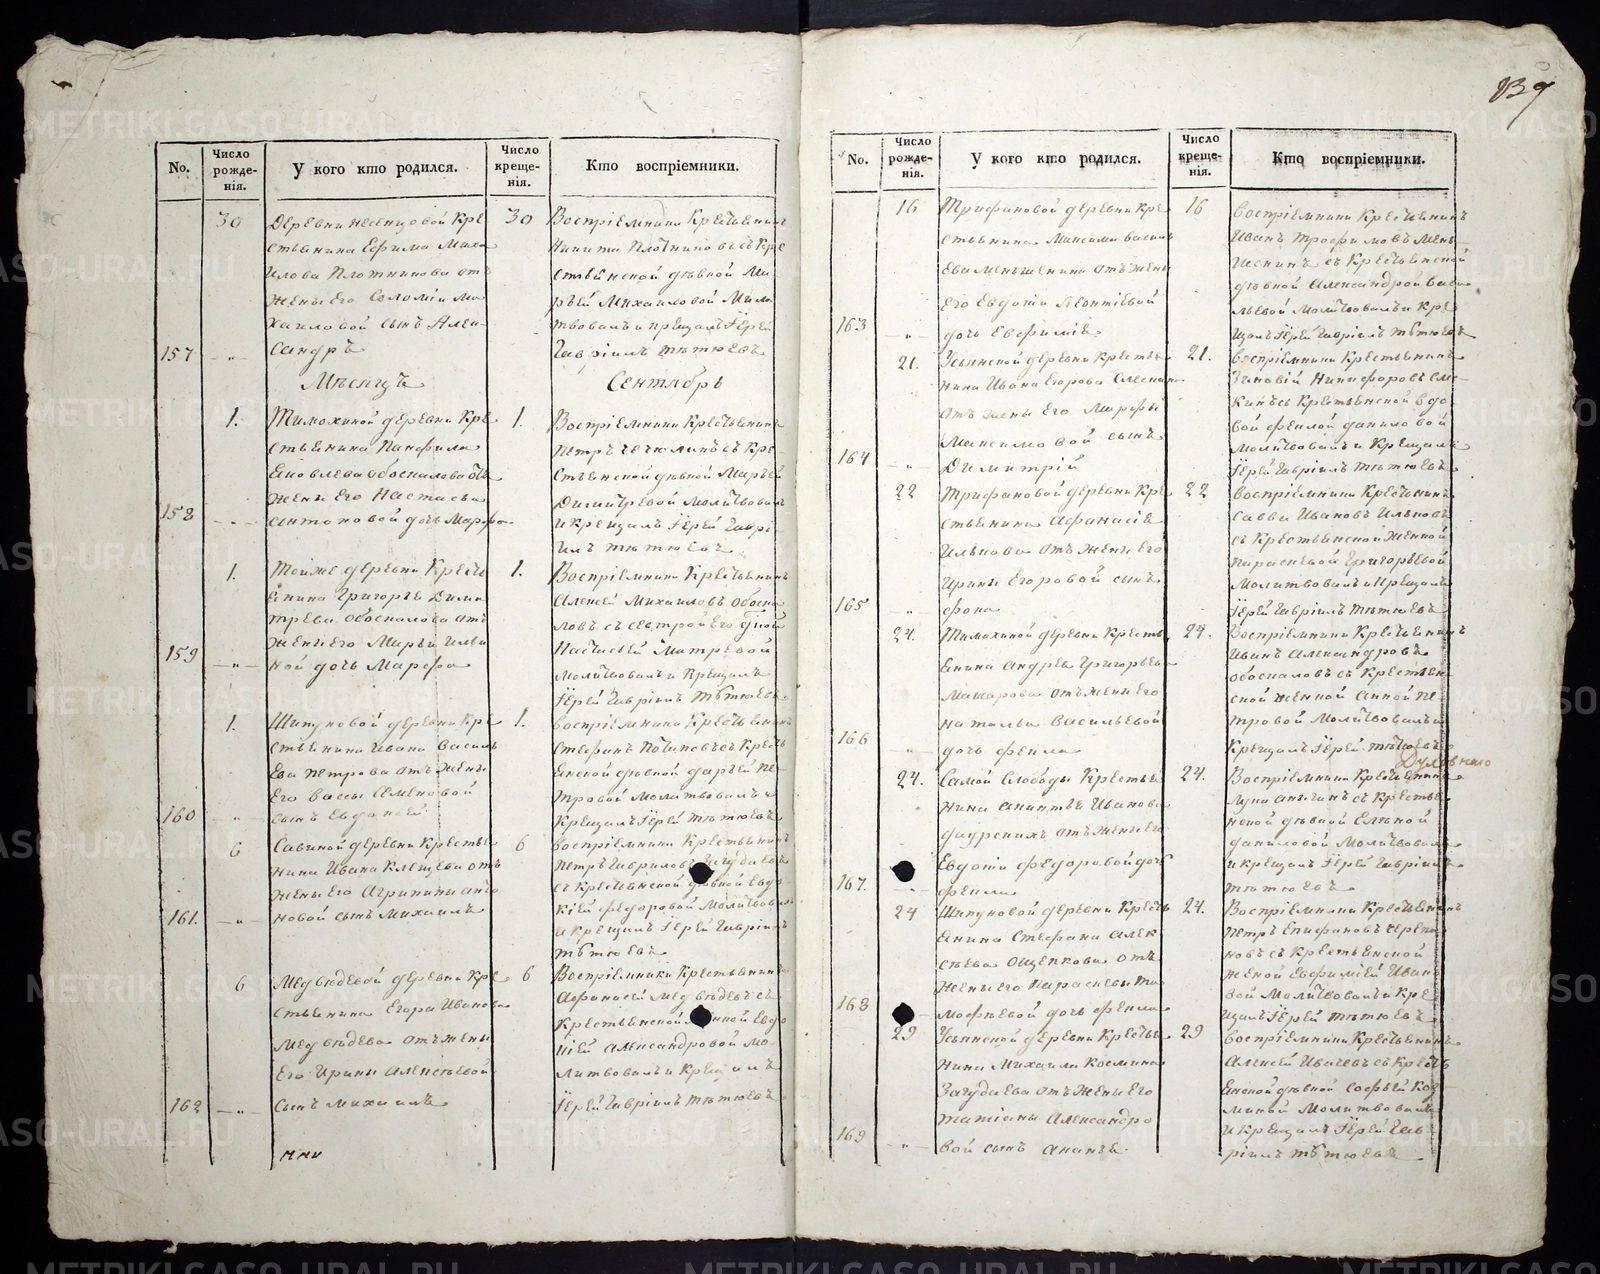 137
No.
Число рожде-нія.
У кого кто родился.
Число креще-нія.
Кто воспріемники.
30
Деревни Несенцовой Кре
стьянина Ефима Миха
илова Плотникова отъ
жены Его Соломіи Ми
хаиловой сынъ Алек-
157 -"- сандръ
30
Воспріемники Крестьянинъ
Никита Плотниковъ съ Кре
стьянской девкой Ма
рьей Михаиловой Моли
твовалъ и крещалъ Іерей
Гавріилъ Тетюевъ
Месяцъ
Сентябрь
1.
Тимохиной деревни Кре
стьянина Панфила
Яковлева Обоскалова отъ
жены Его Настасьи
158 -"- Антоновой дочь Марфа
1.
Воспріемники Крестьянинъ
Петръ съ Кре
стьянской девкой Марьей
Димитревой Молитвовалъ
и Крещалъ Іерей Гаврі
илъ Тетюевъ
1.
Тойже деревни Кресть
янина Григорья Дими
трева Обоскалова отъ
жены Его Марьи
159 -"- ной дочь Марфа
1.
Воспріемники Крестьянинъ
Алексей Михаиловъ Обоска
ловъ съ сестрой Его
Настасьей Митревой
Молитвовалъ и Крещалъ
Іерей Гавріилъ Тетюевъ
1.
Шипуновой деревни Кре
стьянина Ивана Василь
ева Петрова отъ жены
Его Вассы Семеновой
160 " сынъ Евдокей
1.
Воспріемники Крестьянинъ
Стефанъ Потаповъ съ Кресть
янской девкой Дарьей Пе
тровой Молитвовалъ и
Крещалъ Іерей Тетюевъ
6
Савиной деревни Крестья
нина Ивана Клещева отъ
жены Его Агрипины
161. -"- новой сынъ Михаилъ
6
Воспріемники Крестьянинъ
Петръ Гавриловъ Загудаевъ
съ Крестьянской девкой Евдо
кіей Федоровой Молитвовалъ
и Крещалъ Іерей Гавріилъ
Тетюевъ
6
Медведевой деревни Кре
стьянина Егора Иванова
Медведева отъ жены
Его Ирины Алексеевой
162 -"- Сынъ Михаилъ
6
Воспріемники Крестьянинъ
Афанасей Медведевъ съ
Крестьянской женкой Евдо
кіей Александровой Мо
литвовалъ и Крещалъ
Іерей Гавріилъ Тетюевъ
No.
Число рожде-нія.
У кого кто родился.
Число креще-нія.
Кто воспріемники.
16
Трифановой деревни Кре
стьянина Максима Василь
ева Меньшенина отъ жены
Его Евдокіи Леонтіевой
163 -"- дочь Евфимія
16
Воспріемники Крестьянинъ
Иванъ Трофимовъ Мень
шенинъ съ Крестьянской
девкой Александрой Васи
льевой Молитвовалъ и Кре
щалъ Іерей Гавріилъ Тетюевъ
21.
Усьянской деревни Крестья
нина Ивана Егорова
отъ жены Его Марфы
Максимовой сынъ
164 -"- Димитрій
21.
Воспріемники Крестьянинъ
Зиновій Никифоровъ
съ Крестьянской вдо
вой Феклой Даниловой
Молитвовалъ и Крещалъ
Іерей Гавріилъ Тетюевъ
22
Трифановой деревни Кре
стьянина Афанасія
Илькова отъ жены Его
Ирины Егоровой сынъ
165 " Фока
22
Воспріемники Крестьянинъ
Савва Ивановъ Ильковъ
съ Крестьянской женкой
Параскевой Григорьевой
Молитвовалъ и Крещалъ
Іерей Гавріилъ Тетюевъ
24.
Тимохиной деревни Кресть
янина Андрея Григорьева
Машарова отъ жены Его
Натальи Васильевой
166 " дочь Фекла
24.
Воспріемники Крестьянинъ
Иванъ Александровъ
Обоскаловъ съ Крестьян
ской женкой Анной Пе
тровой Молитвовалъ и
Крещалъ Іерей Тетюевъ
24.
Самой Слободы Крестья
нина Анантья Иванова
Даурскихъ отъ жены Его
Евдокіи Федоровой дочь
167. -"- Фекла
24.
Воспріемники Крестьянинъ
Лука съ Крестья
нской девкой Еленой
Даниловой Молитвовалъ
и Крещалъ Іерей Гавріилъ
Тетюевъ
24
Шипуновой деревни Кресть
янина Стефана Алек
сеева Ощепкова отъ
жены Его Параскевы Ти
168 мофеевой дочь Фекла
24.
Воспріемники Крестьянинъ
Петръ Епифановъ Черепа
новъ съ Крестьянской
женкой Евфиміей Ивано
вой Молитвовалъ и Кре
щалъ Іерей Тетюевъ
29
Усьянской деревни Крестья
нина Михаила Козмина
Загудаева отъ жены Его
Татіаны Александро
169 " вой сынъ Ананья
29
Воспріемники Крестьянинъ
Алексей Ивачевъ съ Кресть
янской девкой Софьей Коз
миной Молитвовалъ
и Крещалъ Іерей Гав
ріилъ Тетюевъ